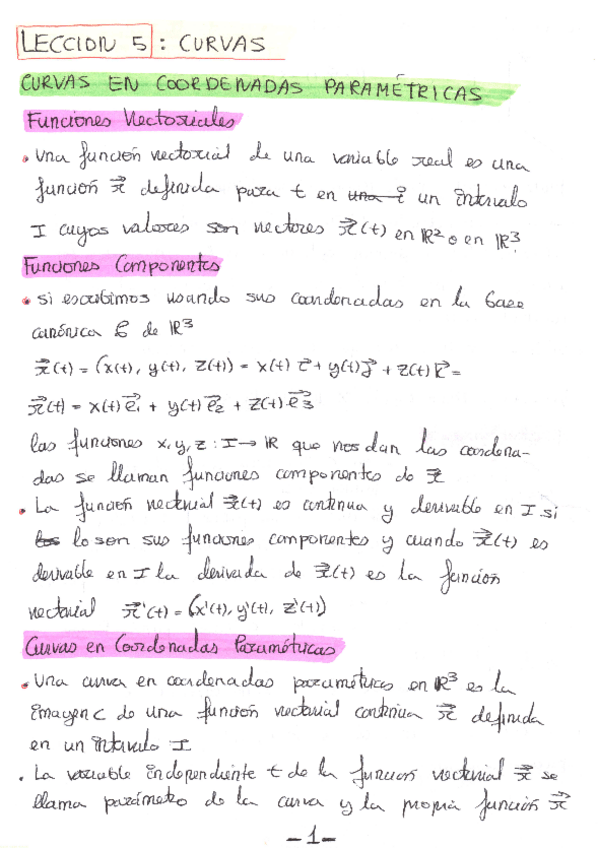 LECCION 5 : CURVAS
CURVAS EN COORDENADAS PARAMÉTRICAS
Funciones Vectoriales
• Una función vectorial de una variable real es una
función r⃗ definida para t en una i un intervalo
I cuyos valores son vectores r⃗(t) en ℝ² o en ℝ³.
Funciones Componentes
• si escribimos usando sus coordenadas en la base
canónica C de ℝ³
r⃗(t) = (x(t), y(t), z(t)) = x(t) i⃗ + y(t) j⃗ + z(t) k⃗ =
r⃗(t) = x(t) e⃗₁ + y(t) e⃗₂ + z(t) e⃗₃
las funciones x, y, z : I → ℝ que nos dan las coordena-
das se llaman funciones componentes de r⃗
• La función vectorial r⃗(t) es continua y derivable en I si
los lo son sus funciones componentes y cuando r⃗(t) es
derivable en I la derivada de r⃗(t) es la función
vectorial r⃗'(t) = (x'(t), y'(t), z'(t))
Curvas en Coordenadas Paramétricas
• Una curva en coordenadas paramétricas en ℝ³ es la
imagen C de una función vectorial continua r⃗ definida
en un intervalo I
• La variable independiente t de la función vectorial r⃗ se
llama parámetro de la curva y la propia función r⃗
-1-